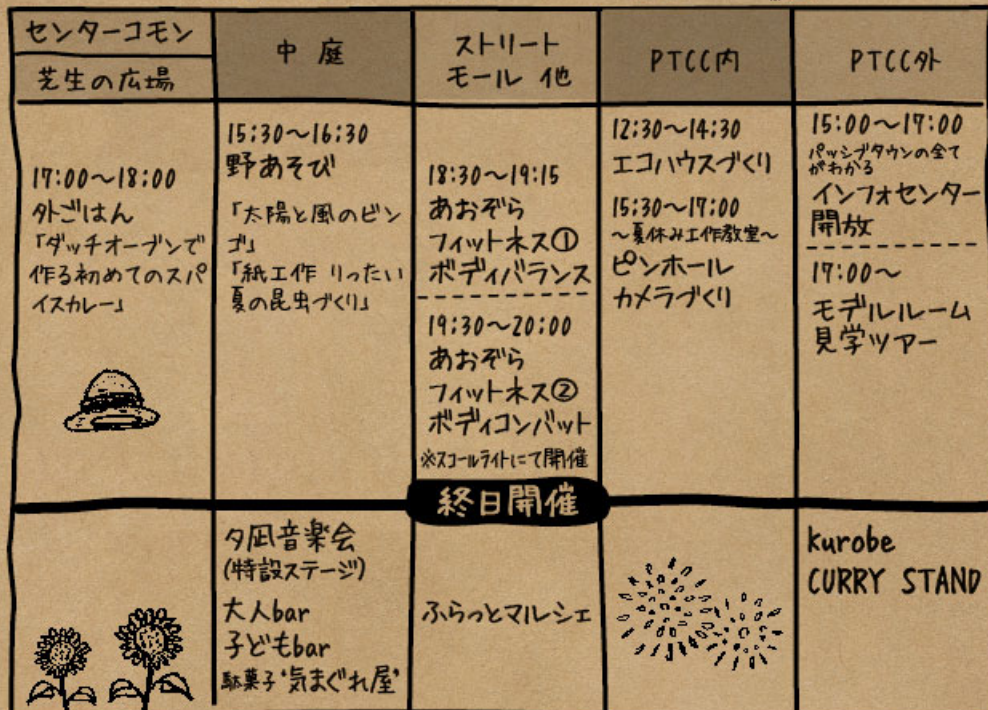 センターコモン
芝生の広場
17:00～18:00
外ごはん
「ダッチオーブンで
作る初めてのスパ
イスカレー」
中庭
15:30～16:30
野あそび
「太陽と風のビン
ゴ」
「紙工作 りったい
夏の昆虫づくり」
ストリート
モール 他
18:30～19:15
あおぞら
フィットネス①
ボディバランス
19:30～20:00
あおぞら
フィットネス②
ボディコンバット
※スコールライトにて開催
PTCC内
12:30～14:30
エコハウスづくり
15:30～17:00
～夏休み工作教室～
ピンホール
カメラづくり
PTCC外
15:00～17:00
パッシブタウンの全て
がわかる
インフォセンター
開放
17:00～
モデルルーム
見学ツアー
終日開催
夕凪音楽会
(特設ステージ)
大人bar
子どもbar
駄菓子‘気まぐれ屋’
ふらっとマルシェ
kurobe
CURRY STAND